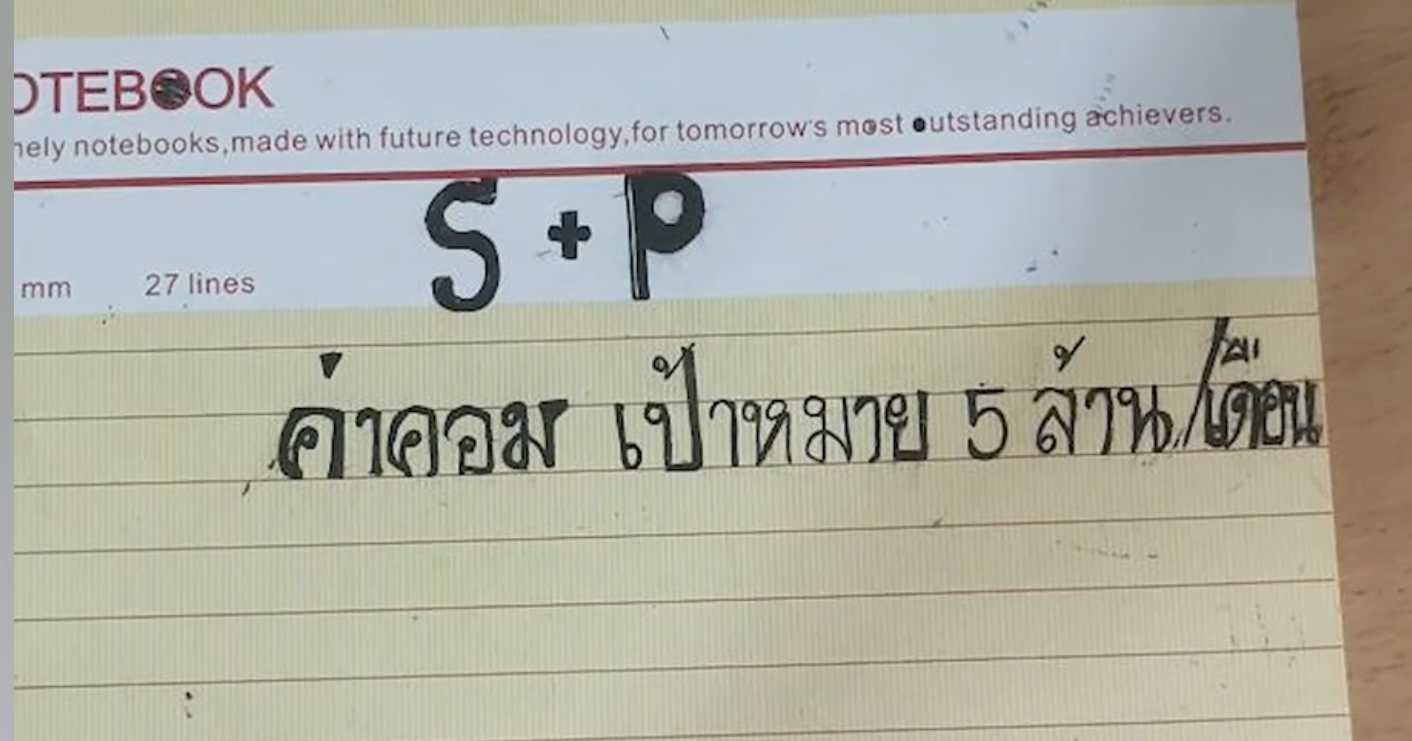 OTEBOOK
nely notebooks,made with future technology,for tomorrow's most outstanding achievers.
S + P
mm 27 lines
ค่าคอม เป้าหมาย 5 ล้าน/เดือน